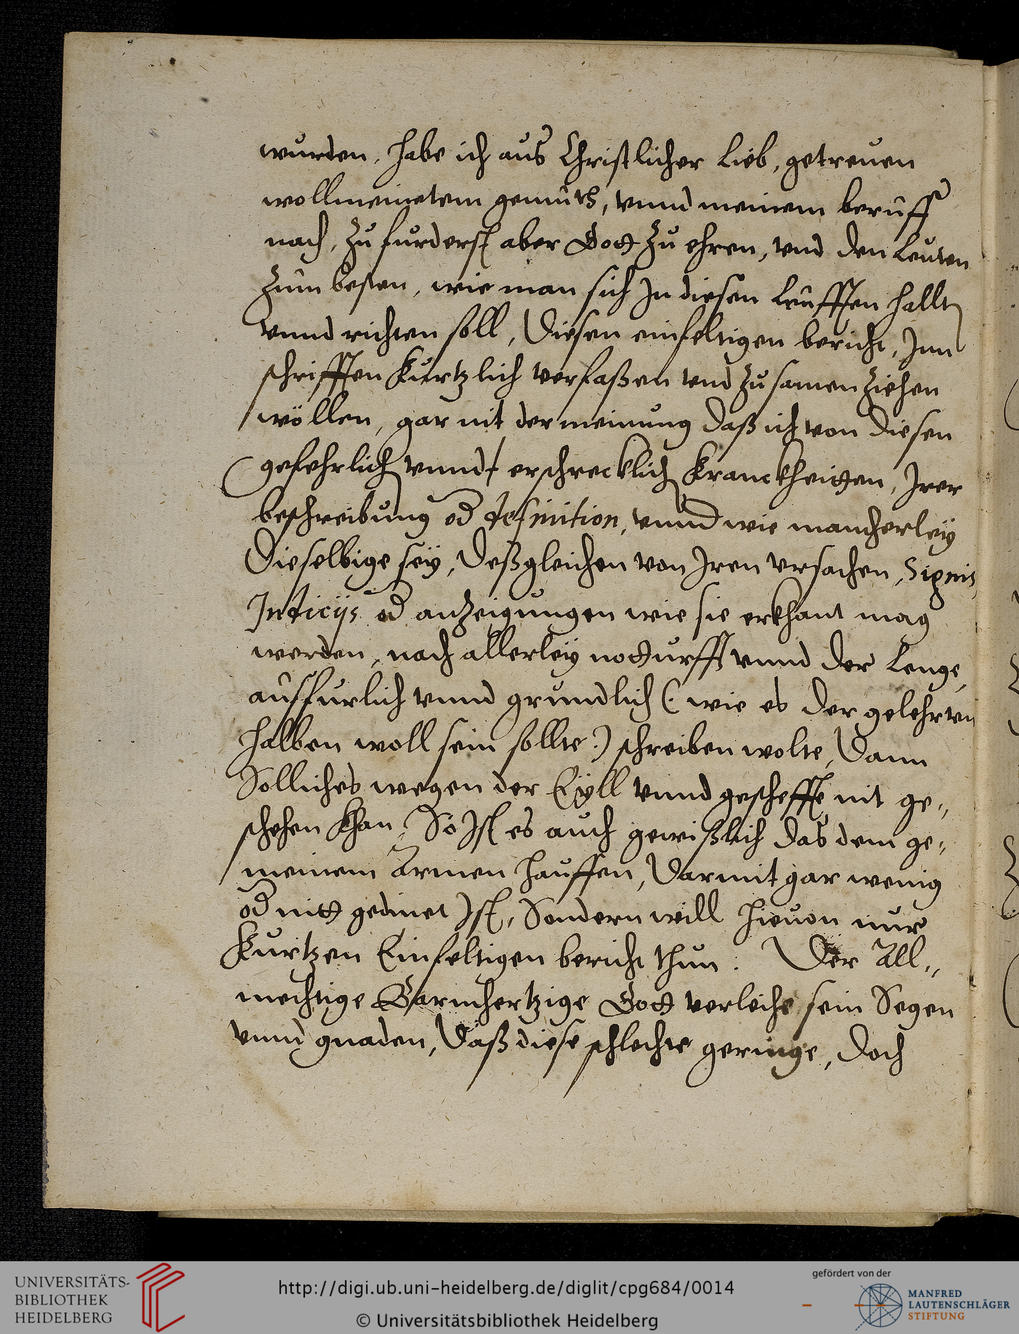 wurden, habe ich aus Christlicher Lieb, getreuen
wollmeinetem gemüth, vnnd meinem beruff
nach, zu furderst aber Gott zu ehren, vnd den Leuten
zum besten, wie man sich Jn diesen Leufften hallt
vnnd richten soll, Diesen einfeltigen bericht, Jnn
schrifften kurtzlich verfaßen vnd zusamen ziehen
wöllen, gar nit der meinung daß ich von diesen
gefehrlich vnnd erschrecklich Kranckheitten, Jrer
beschreibung od definition, vnnd wie mancherley
Dieselbige sey, Deßgleichen von Jren vrsachen, Signis,
Indicijs od anzeigungen wie sie erkhant mag
werden, nach allerley notturfft vnnd der Lenge,
ausfurlich vnnd grundlich (: wie es der gelehrten
halben woll sein sollte :) schreiben wolte, Dann
Solliches wegen der Eyll vnnd gescheffte nit ge„
schehen khan, So Jst es auch gewißlich das dem ge„
meinem Armen hauffen, Darmit gar wenig
od nitt gedinet Jst, Sondern will hieuon nur
kurtzen Einfeltigen bericht thun. Der All„
mechtige Barmhertzige Gott verleihe sein Segen
vnnd gnaden, Daß diese schlechte geringe, doch
UNIVERSITÄTS-
BIBLIOTHEK
HEIDELBERG
http://digi.ub.uni-heidelberg.de/diglit/cpg684/0014
© Universitätsbibliothek Heidelberg
gefördert von der
MANFRED
LAUTENSCHLÄGER
STIFTUNG